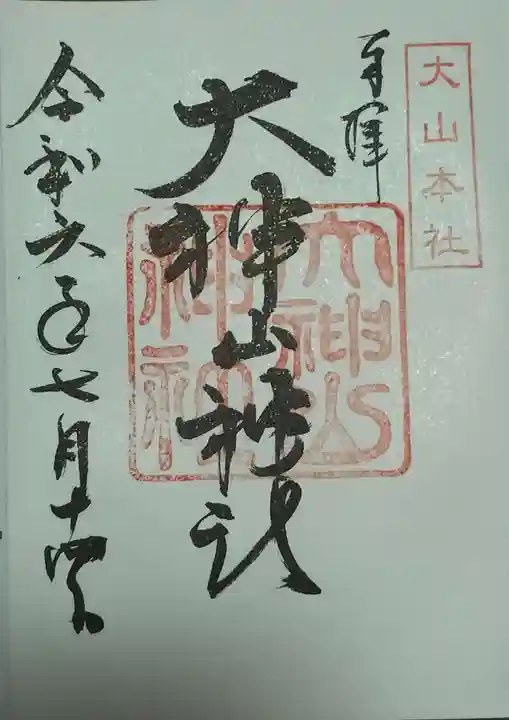 大山本社
奉拝
大神山神社
令和六年七月十四日